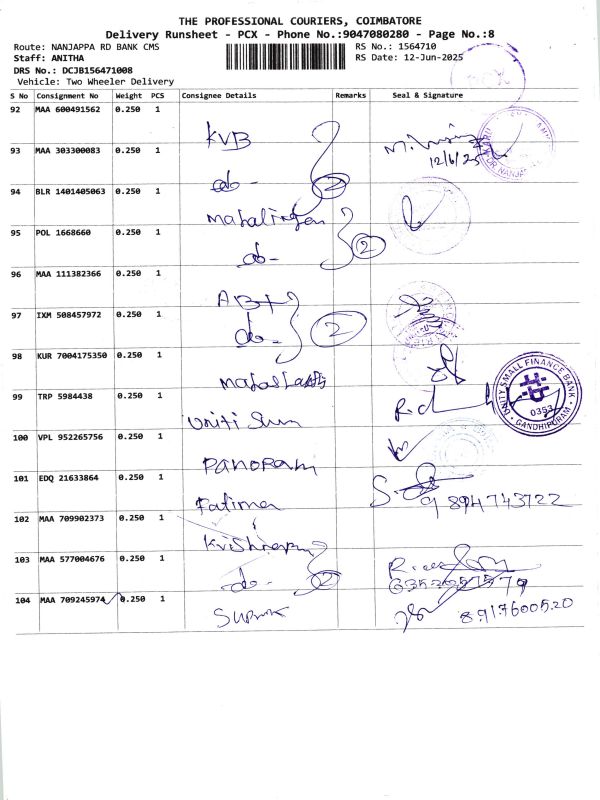 THE PROFESSIONAL COURIERS, COIMBATORE
Delivery Runsheet - PCX - Phone No.:9047080280 - Page No.:8
Route: NANJAPPA RD BANK CMS
RS No.: 1564710
Staff: ANITHA
RS Date: 12-Jun-2025
DRS No.: DCJB156471008
Vehicle: Two Wheeler Delivery
S No Consignment No Weight PCS Consignee Details Remarks Seal & Signature
92 MAA 600491562 0.250 1
KVB
93 MAA 303300083 0.250 1
12/6/25
do- 2
94 BLR 1401405063 0.250 1
95 POL 1668660 0.250 1
do- 2
96 MAA 111382366 0.250 1
97 IXM 508457972 0.250 1
do- 2
98 KUR 7004175350 0.250 1
99 TRP 5984438 0.250 1
UNITY SMALL FINANCE BANK
0353
GANDHIPURAM
100 VPL 952265756 0.250 1
Panoram
101 EDQ 21633864 0.250 1
Fatima
9894743722
102 MAA 709902373 0.250 1
103 MAA 577004676 0.250 1
do- 2
104 MAA 709245974 0.250 1
8917600520